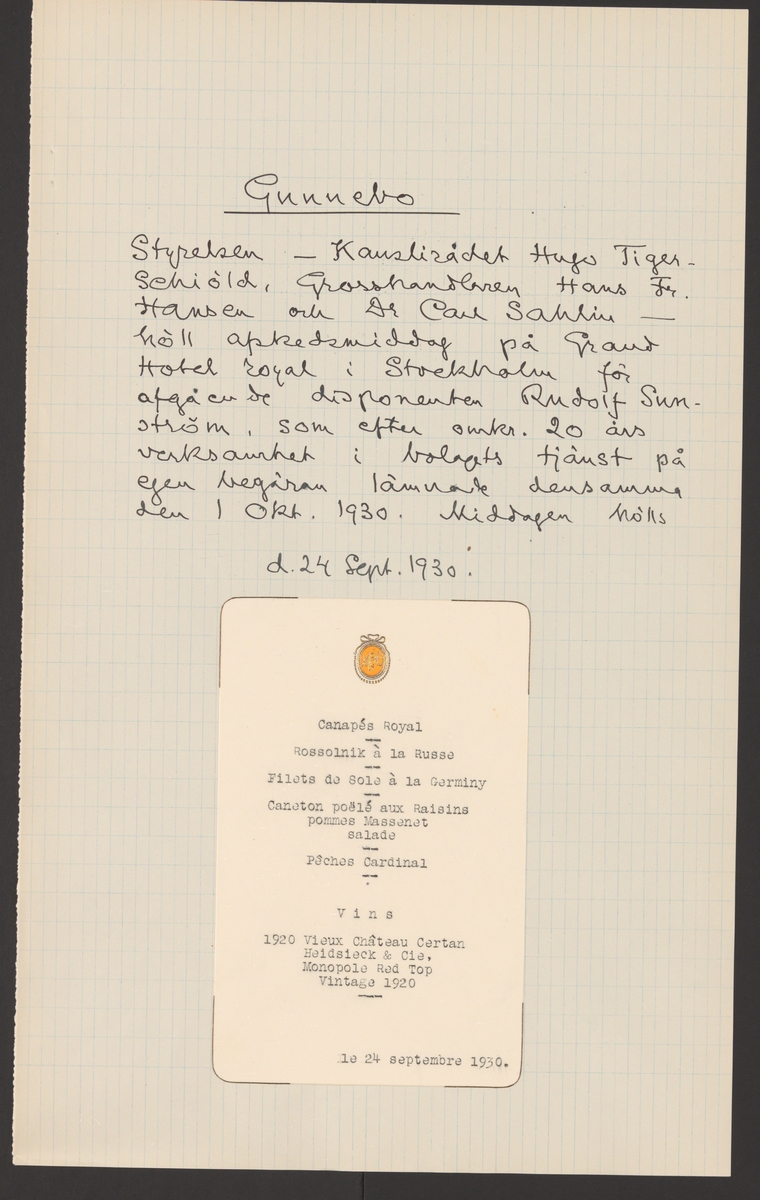 Gunnebo
Styrelsen – Kanslirådet Hugo Tiger-
Schiöld, Grosshandlaren Hans Fr.
Hansen och Dr Carl Sahlin –
höll afskedsmiddag på Grand
Hotel Royal i Stockholm för
afgående disponenten Rudolf Sun-
ström, som efter omkr. 20 års
verksamhet i bolagets tjänst på
egen begäran lämnade densamma
den 1 Okt. 1930. Middagen hölls
d. 24 Sept. 1930.
Canapés Royal
Rossolnik à la Russe
Filets de Sole à la Germiny
Caneton poëlé aux Raisins
pommes Massenet
salade
Pêches Cardinal
Vins
1920 Vieux Château Certan
Heidsieck & Cie,
Monopole Red Top
Vintage 1920
le 24 septembre 1930.